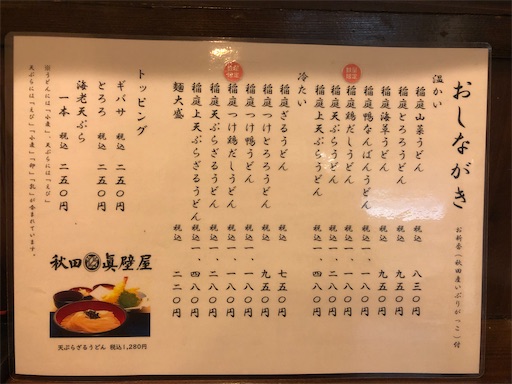 おしながき
お新香(秋田産いぶりがっこ)付
温かい
稲庭山菜うどん 税込 八三〇円
稲庭とろろうどん 税込 九五〇円
稲庭海草うどん 税込 九五〇円
稲庭鴨なんばんうどん 税込 一、一八〇円
稲庭鶏だしうどん 税込 一、一八〇円
稲庭天ぷらうどん 税込 一、二八〇円
稲庭上天ぷらうどん 税込 一、四八〇円
冷たい
稲庭ざるうどん 税込 七五〇円
稲庭つけとろろうどん 税込 九五〇円
稲庭つけ鴨うどん 税込 一、一八〇円
稲庭つけ鶏だしうどん 税込 一、一八〇円
稲庭天ぷらざるうどん 税込 一、二八〇円
稲庭上天ぷらざるうどん 税込 一、四八〇円
麺大盛 税込 二二〇円
トッピング
ギバサ 税込 二五〇円
とろろ 税込 二五〇円
海老天ぷら
一本 税込 二五〇円
※うどんには「小麦」、天ぷらには「えび」
天ぷらには「えび」「小麦」「卵」「乳」が含まれています。
秋田 眞壁屋
天ぷらざるうどん 税込1,280円